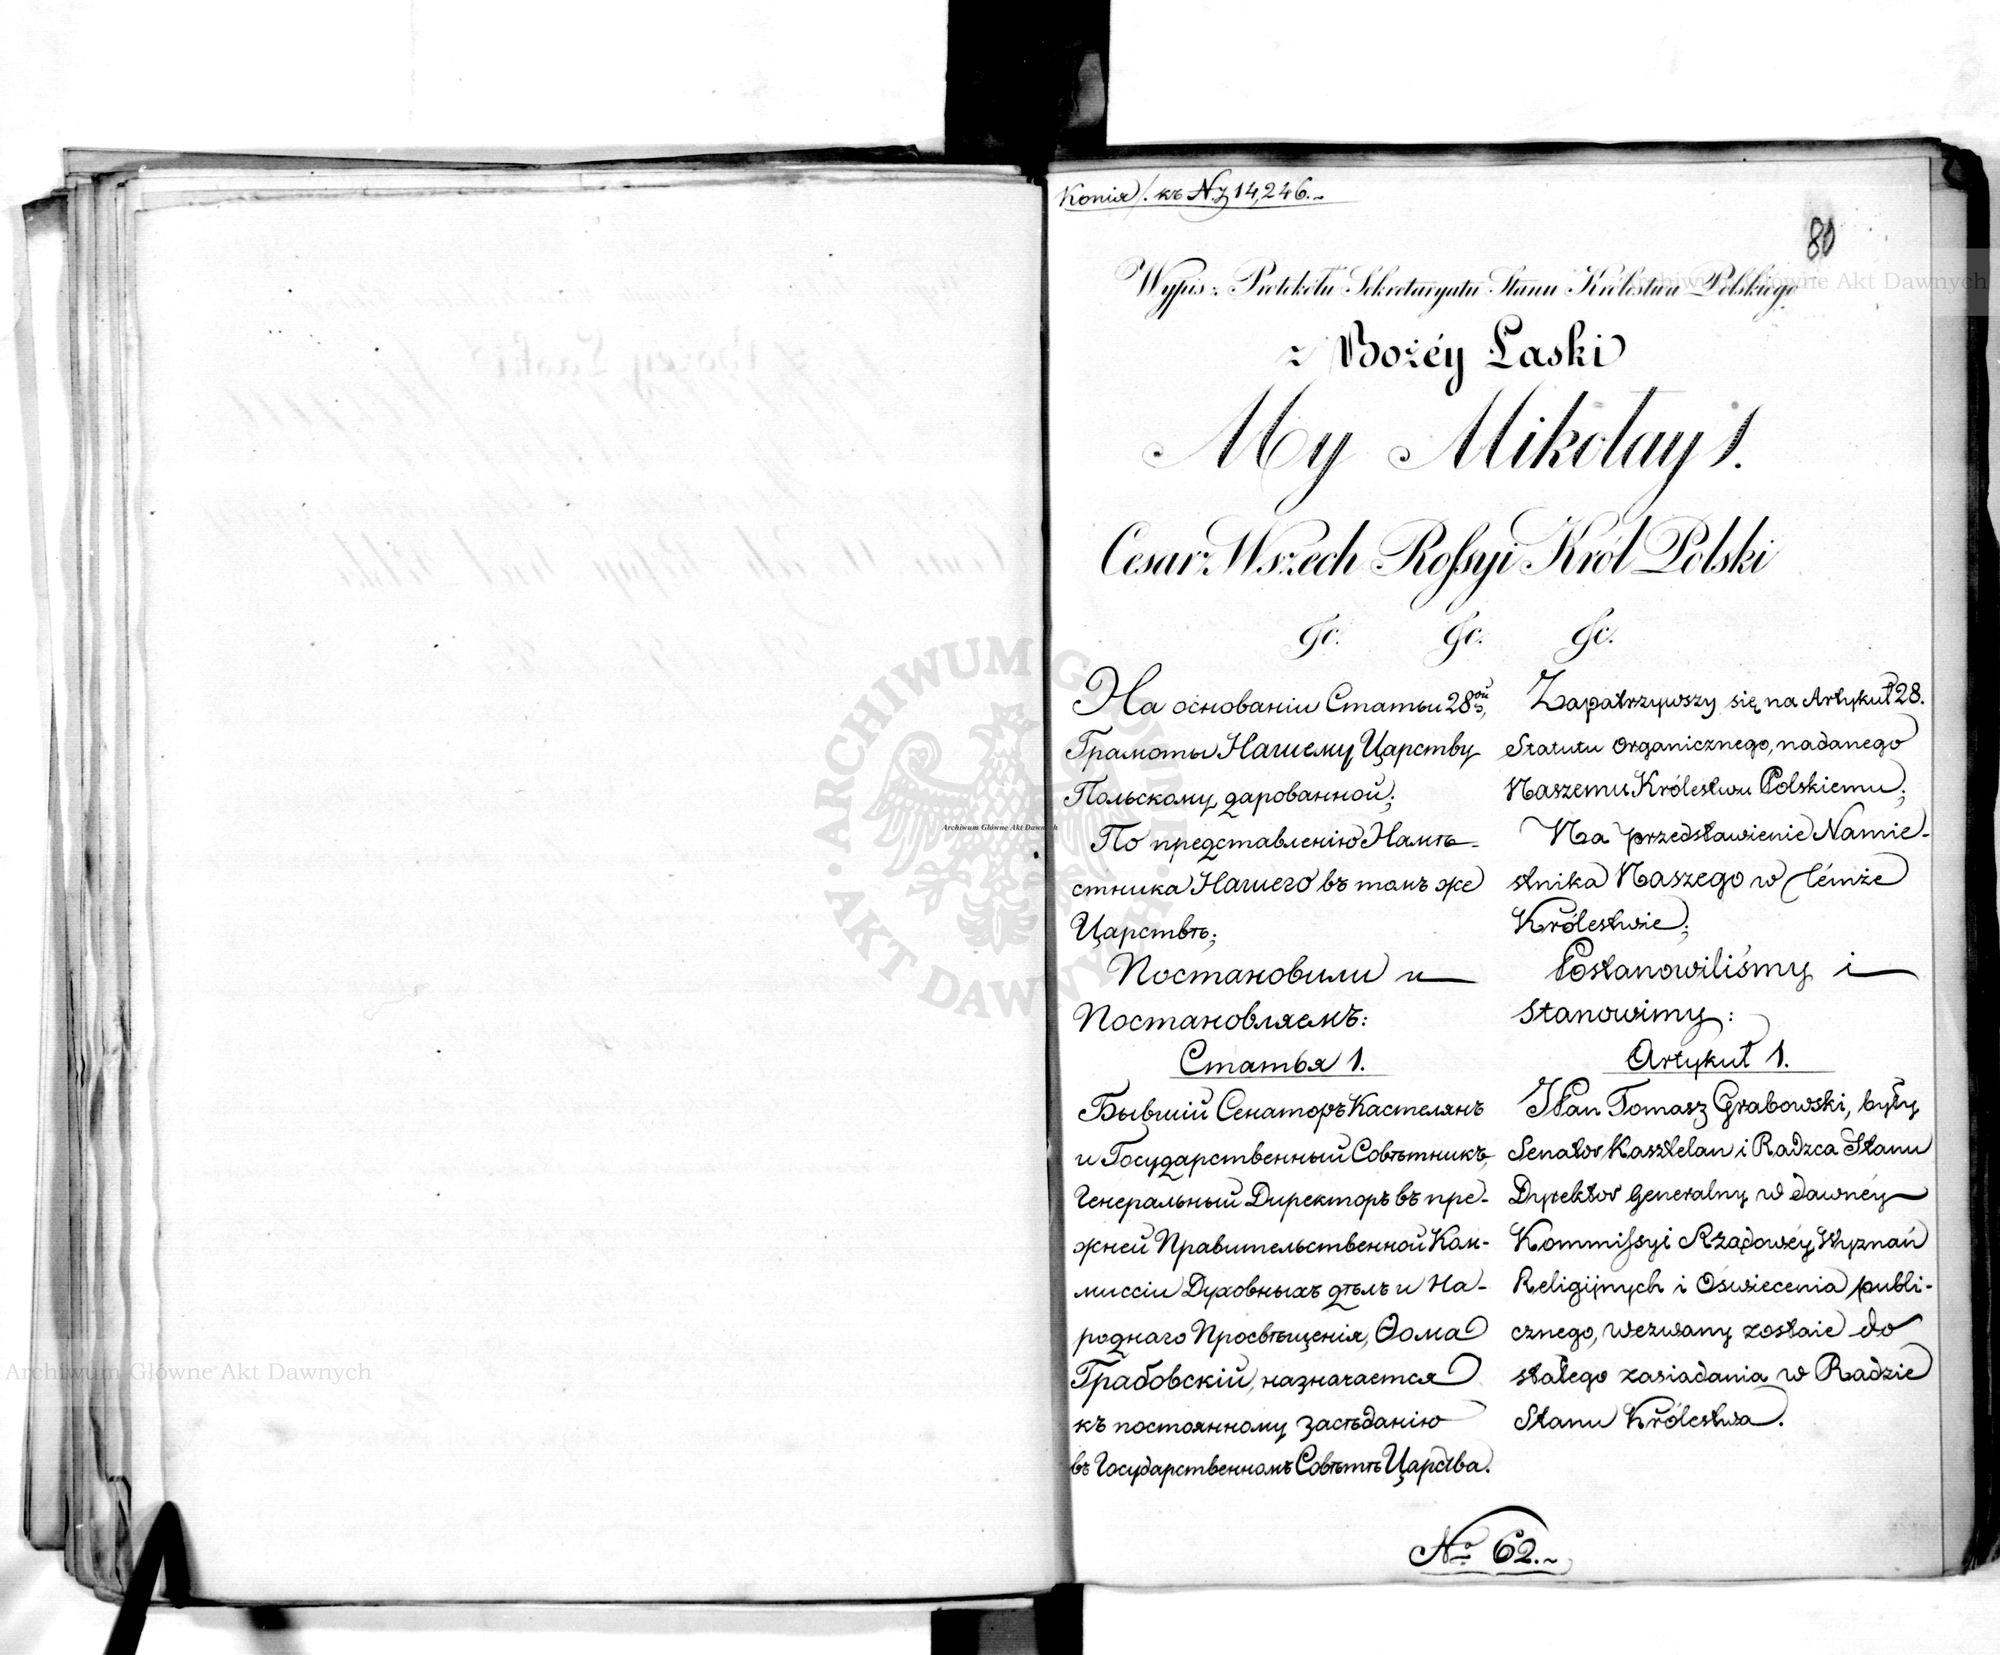 Копія /. къ N. 14,246.~
80
Wypis z Protokołu Sekretaryatu Stanu Królestwa Polskiego
z Bożéy Łaski
My Mikołay 1.
Cesarz Wszech Rossyi Król Polski
&c. &c. &c.
На основаніи Статьи 28ой,
Грамоты Нашему Царству
Польскому дарованной;
По представленію Намѣ-
стника Нашего въ томъ же
Царствѣ;
Постановили и
Постановляемъ:
Статья 1.
Бывшій Сенаторъ Кастелянъ
и Государственный Совѣтникъ,
Генеральный Директоръ въ пре-
жней Правительственной Ком-
миссіи Духовныхъ дѣлъ и На-
роднаго Просвѣщенія, Ѳома
Грабовскій, назначается
къ постоянному засѣданію
въ Государственномъ Совѣтѣ Царства.
Zapatrzywszy się na Artykuł 28.
Statutu Organicznego, nadanego
Naszemu Królestwu Polskiemu;
Na przedstawienie Namie-
stnika Naszego w témże
Królestwie;
Postanowiliśmy i
Stanowimy:
Artykuł 1.
JPan Tomasz Grabowski, były
Senator Kasztelan i Radzca Stanu
Dyrektor Generalny w dawnéy
Kommissyi Rządowéy Wyznań
Religijnych i Oświecenia publi-
cznego, wezwany zostaie do
stałego zasiadania w Radzie
Stanu Królestwa.
No 62.~
ARCHIWUM GŁÓWNE AKT DAWNYCH
Archiwum Główne Akt Dawnych
Archiwum Główne Akt Dawnych
Archiwum Główne Akt Dawnych